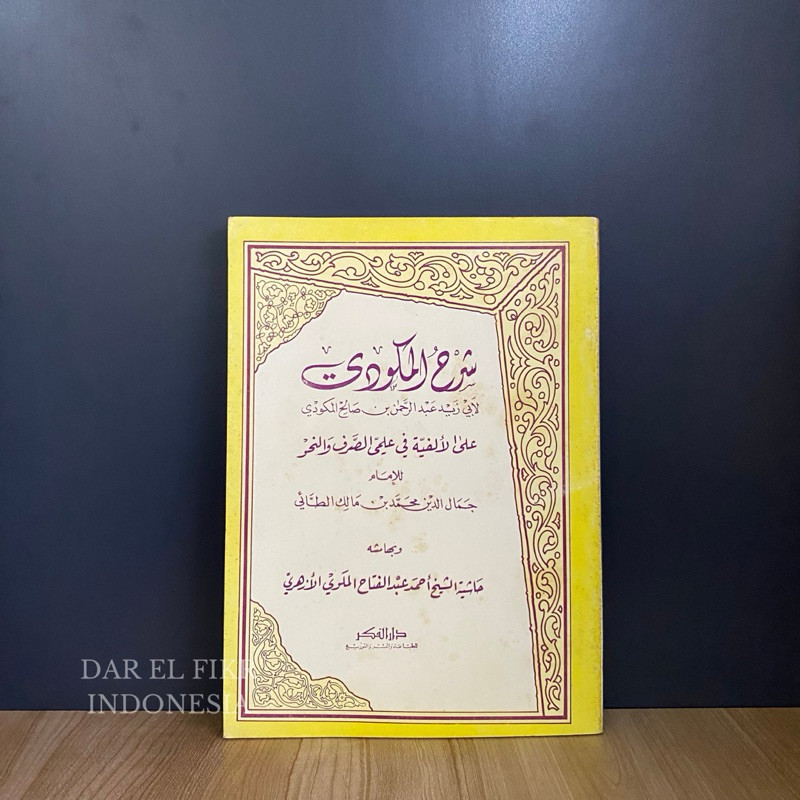 شرح المكودي
لأبي زيد عبد الرحمن بن صالح المكودي
على الألفية في علمي الصرف والنحو
للإمام
جمال الدين محمد بن مالك الطائي
وبهامشه
حاشية الشيخ أحمد عبد الفتاح الملوي الأزهري
دار الفكر
للطباعة والنشر والتوزيع
DAR EL FIKR
INDONESIA